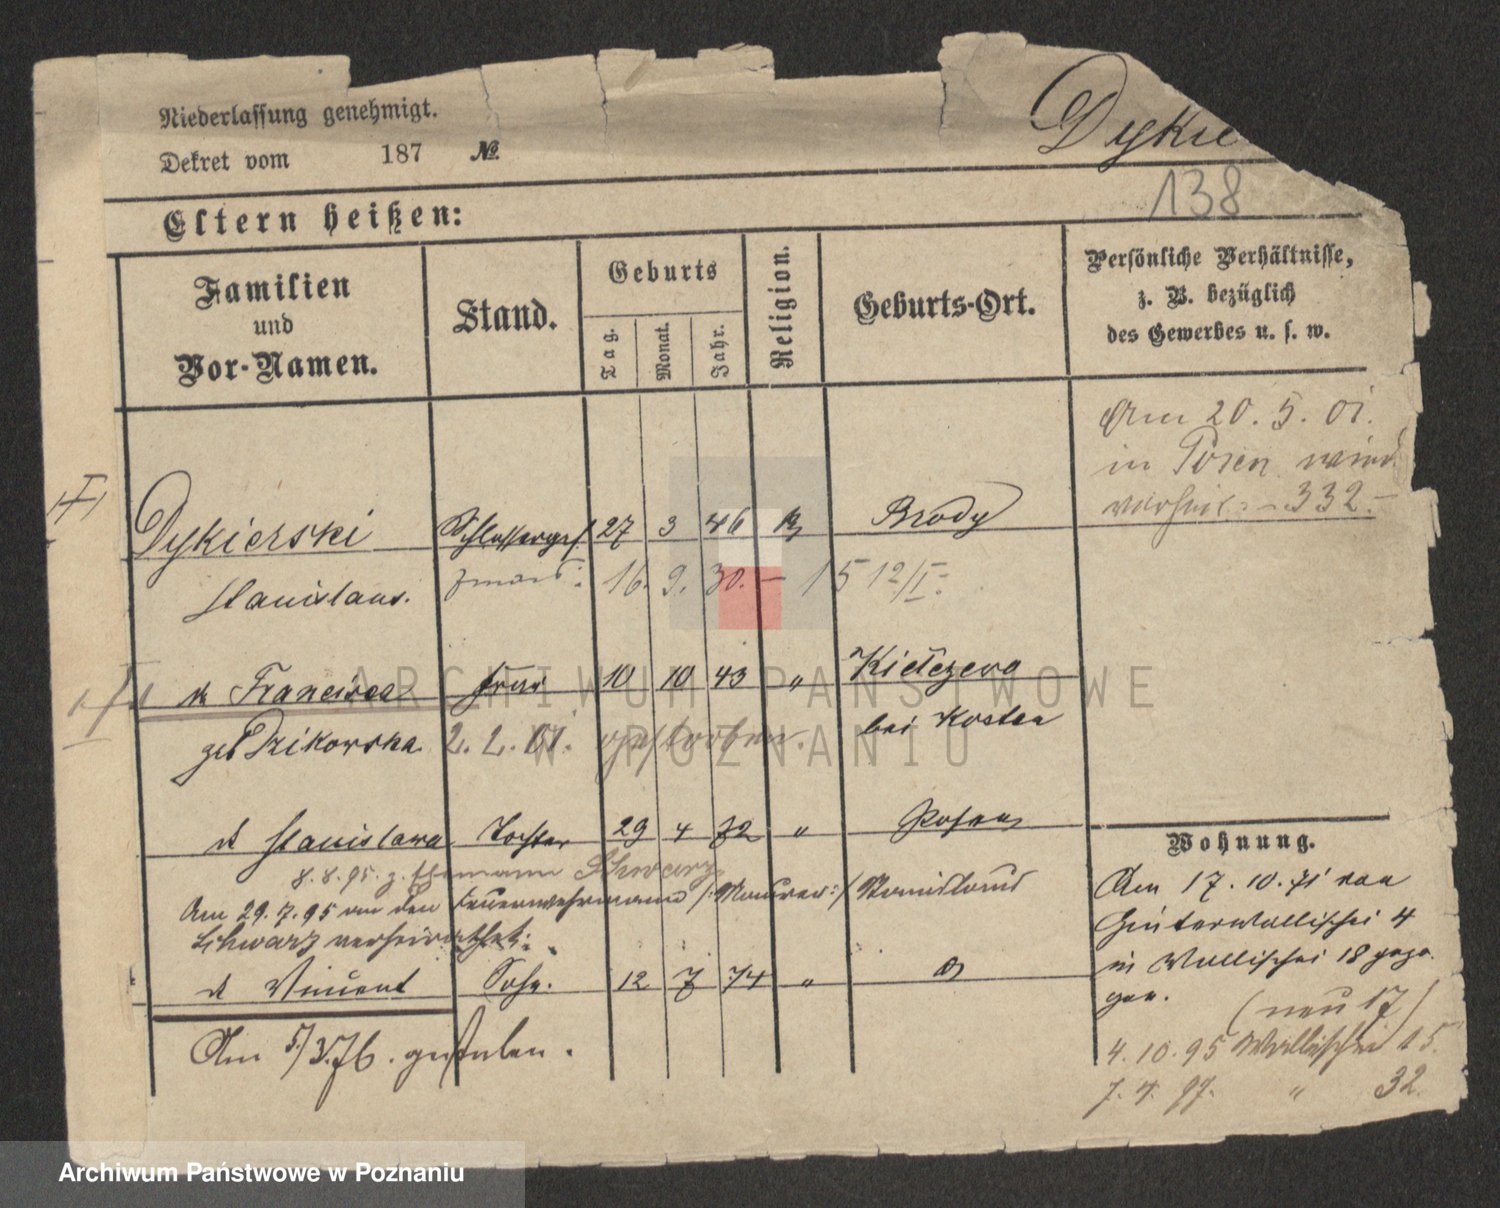 Niederlassung genehmigt.
Dekret vom 187 №
Dykie
138
Eltern heißen:
Familien und Vor-Namen.
Stand.
Geburts
Tag.
Monat.
Jahr.
Religion.
Geburts-Ort.
Persönliche Verhältnisse,
z. B. bezüglich
des Gewerbes u. s. w.
Am 20. 5. 01.
in Posen wird
332.-
Dykierski Schlosserges. 27 3 46 Brody
Stanislaus. 16. 9. 30. - 15 12/I.
d Francisca Frau 10 10 43 „ Kiełczewo
geb Dzikowska. 2. 2. 01. gestorben. bei Kosten
d Stanislawa Tochter 29 4 72 „ Posen
8. 8. 95. z. Ehemann Schwarz
Am 29. 7. 95 an den Feuerwehrmann /:Maurer:/ Stanislaus
Schwarz verheirathet.
d Vincent Sohn. 12 7 74 „
Am 5/3.76. gestorben.
Wohnung.
Am 17. 10. 71 von
Hinterwallischei 4
in Wallischei 18 gezo-
gen.
(neu 17)
4. 10. 95 Wallischei 15.
7. 4. 97. „ 32.
ARCHIWUM PAŃSTWOWE
W POZNANIU
Archiwum Państwowe w Poznaniu